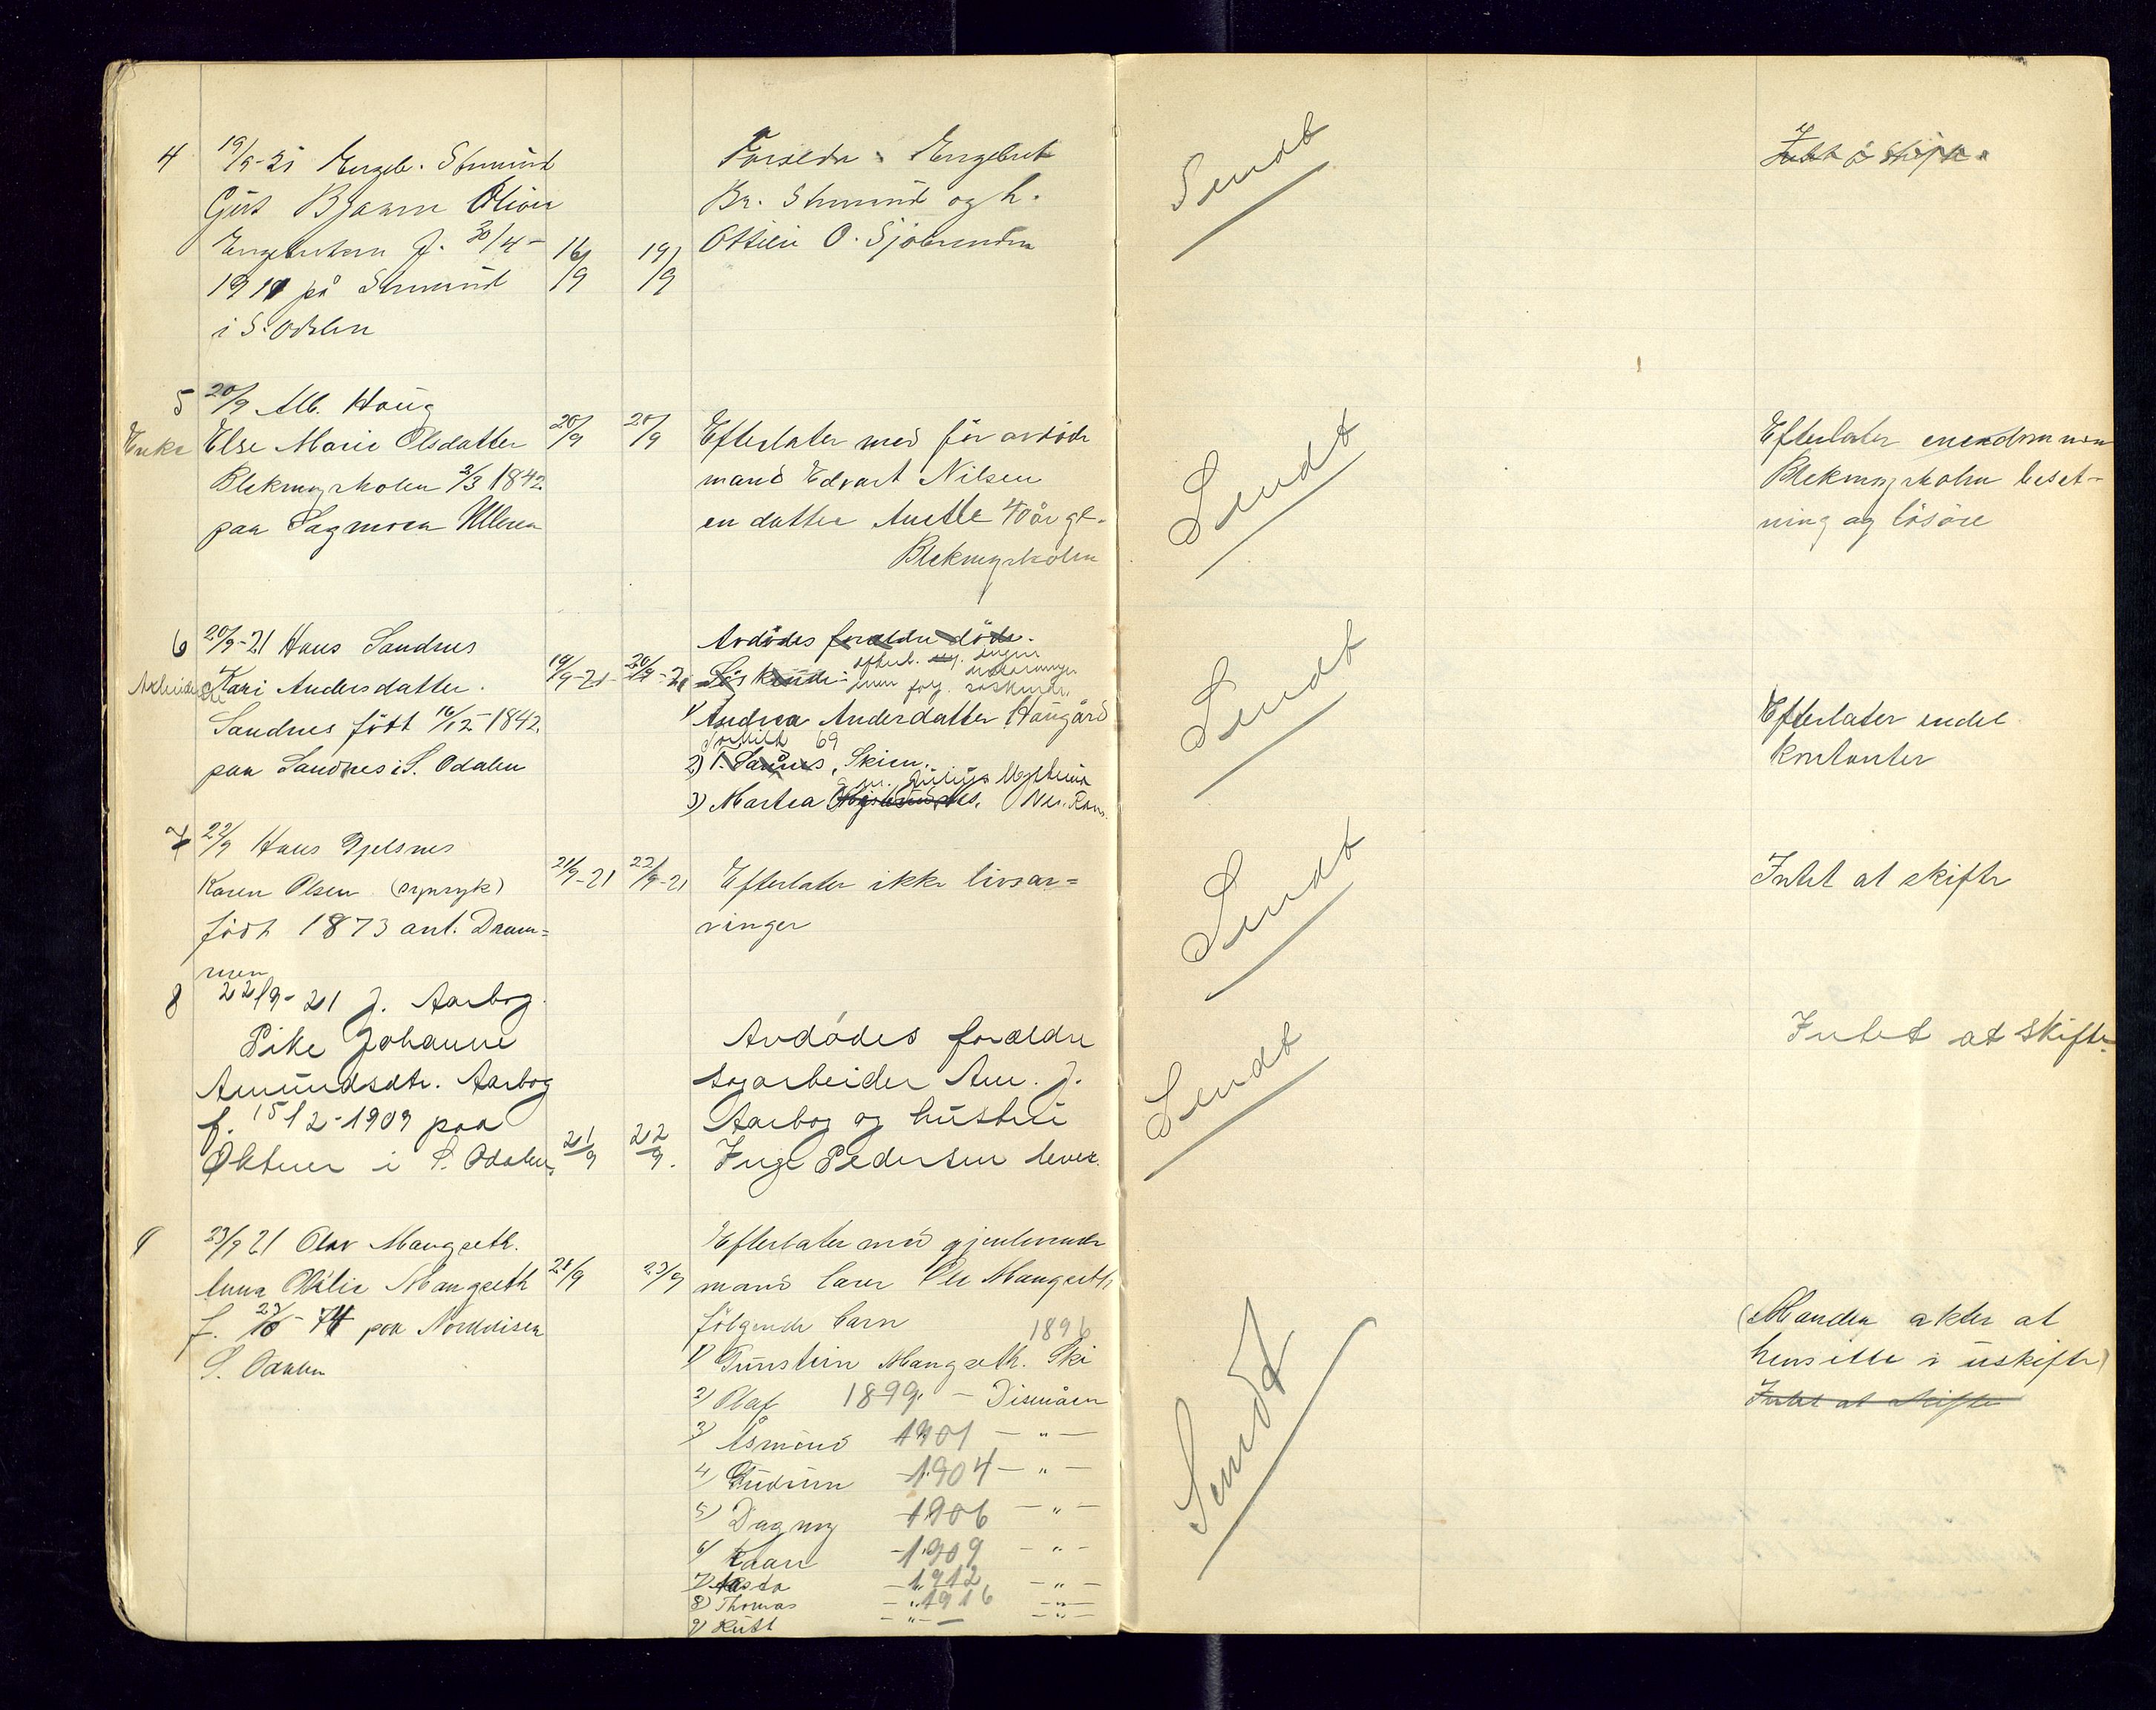 4
19/9-21 Engeb. Strmünd
Güt Bjarne Olivir
Engebretsen f. 30/4-
1911 på Strmünd
i S. Odalen
16/9
19/9
Foreldre Engebret
Br. Strmünd og h.
Ottilie O.
Sendt
Intet å skifte
5
20/9 Alb. Haug
Enke
Else Marie Olsdatter
Blekmyrholen 3/3 1842.
paa Sagmoen Ullern
20/9
20/9
Efterlater med før avdöde
mand Edvart Nilsen
en datter Anette 40 år gl.
Blekmyrholen
Sendt
Efterlater eiendommen
Blekmyrholen beset-
ning og lösöre
6
20/9-21 Hans Sandnes
Kari Andersdatter.
Sandnes født 16/12-1842.
paa Sandnes i S. Odalen
19/9-21
20/9-21
Avdödes foreldre döde.
Söskende:
efterl. ingen
livsarvinger
men følg. søskende
1) Andrea Andersdatter Haugård
69
2) Skien.
3) Martea
Sendt
Efterlater endel
kontanter
7
22/9 Hans Gjelsnes
Karen Olsen (sypsyk)
født 1873 ant. Dram=
men
21/9-21
22/9-21
Efterlater ikke livsar=
vinger
Sendt
Intet at skifte
8
22/9-21 J. Aarbog.
Pike Johanne
Amündsdtr. Aarbog
f. 15/2-1909 paa
Oktner i S. Odalen.
21/9
22/9.
Avdödes forældre
sagarbeider Am. J.
Aarbog og hüstrü
Inge Pedersen lever.
Sendt
Intet at skifte.
9
23/9 21 Olav Mangseth.
Anna Otilie Mangseth
f. 23/10-74 paa Norddisen
S. Odalen
21/9
23/9
Efterlater med gjenlevende
mand lærer Ole Mangseth
følgende barn
1) Günstein Mangseth. Ski 1896
2) Olaf 1899 — Disenåen
3) Åsmünd 1901 — „ —
4) Güdrün 1904 — „ —
5) Dagny 1906 — „ —
6) Kaare 1909 — „ —
7) Aasta 1912 — „ —
8) Thomas 1916 — „ —
9) Rüth — „ — — „ —
Sendt
(Manden akter at
hensitte i üskifte)
Intet at skifte